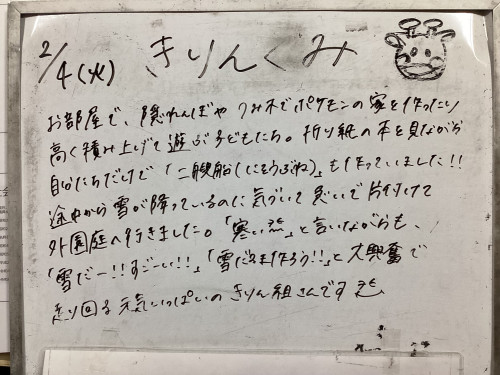 2/4(火) きりんぐみ
お部屋で、隠れんぼや つみ木でポケモンの家を作ったり
高く積み上げて遊ぶ子どもたち。折り紙の本を見ながら
自分たちだけで「二艘船(にそうぶね)」も作っていました!!
途中から雪が降っているのに気づいて急いで片付けて
外園庭へ行きました。「寒い」と言いながらも、
「雪だー!!すごーい!!」「雪だるま作ろう!!」と大興奮で
走り回る元気いっぱいの きりん組さんです